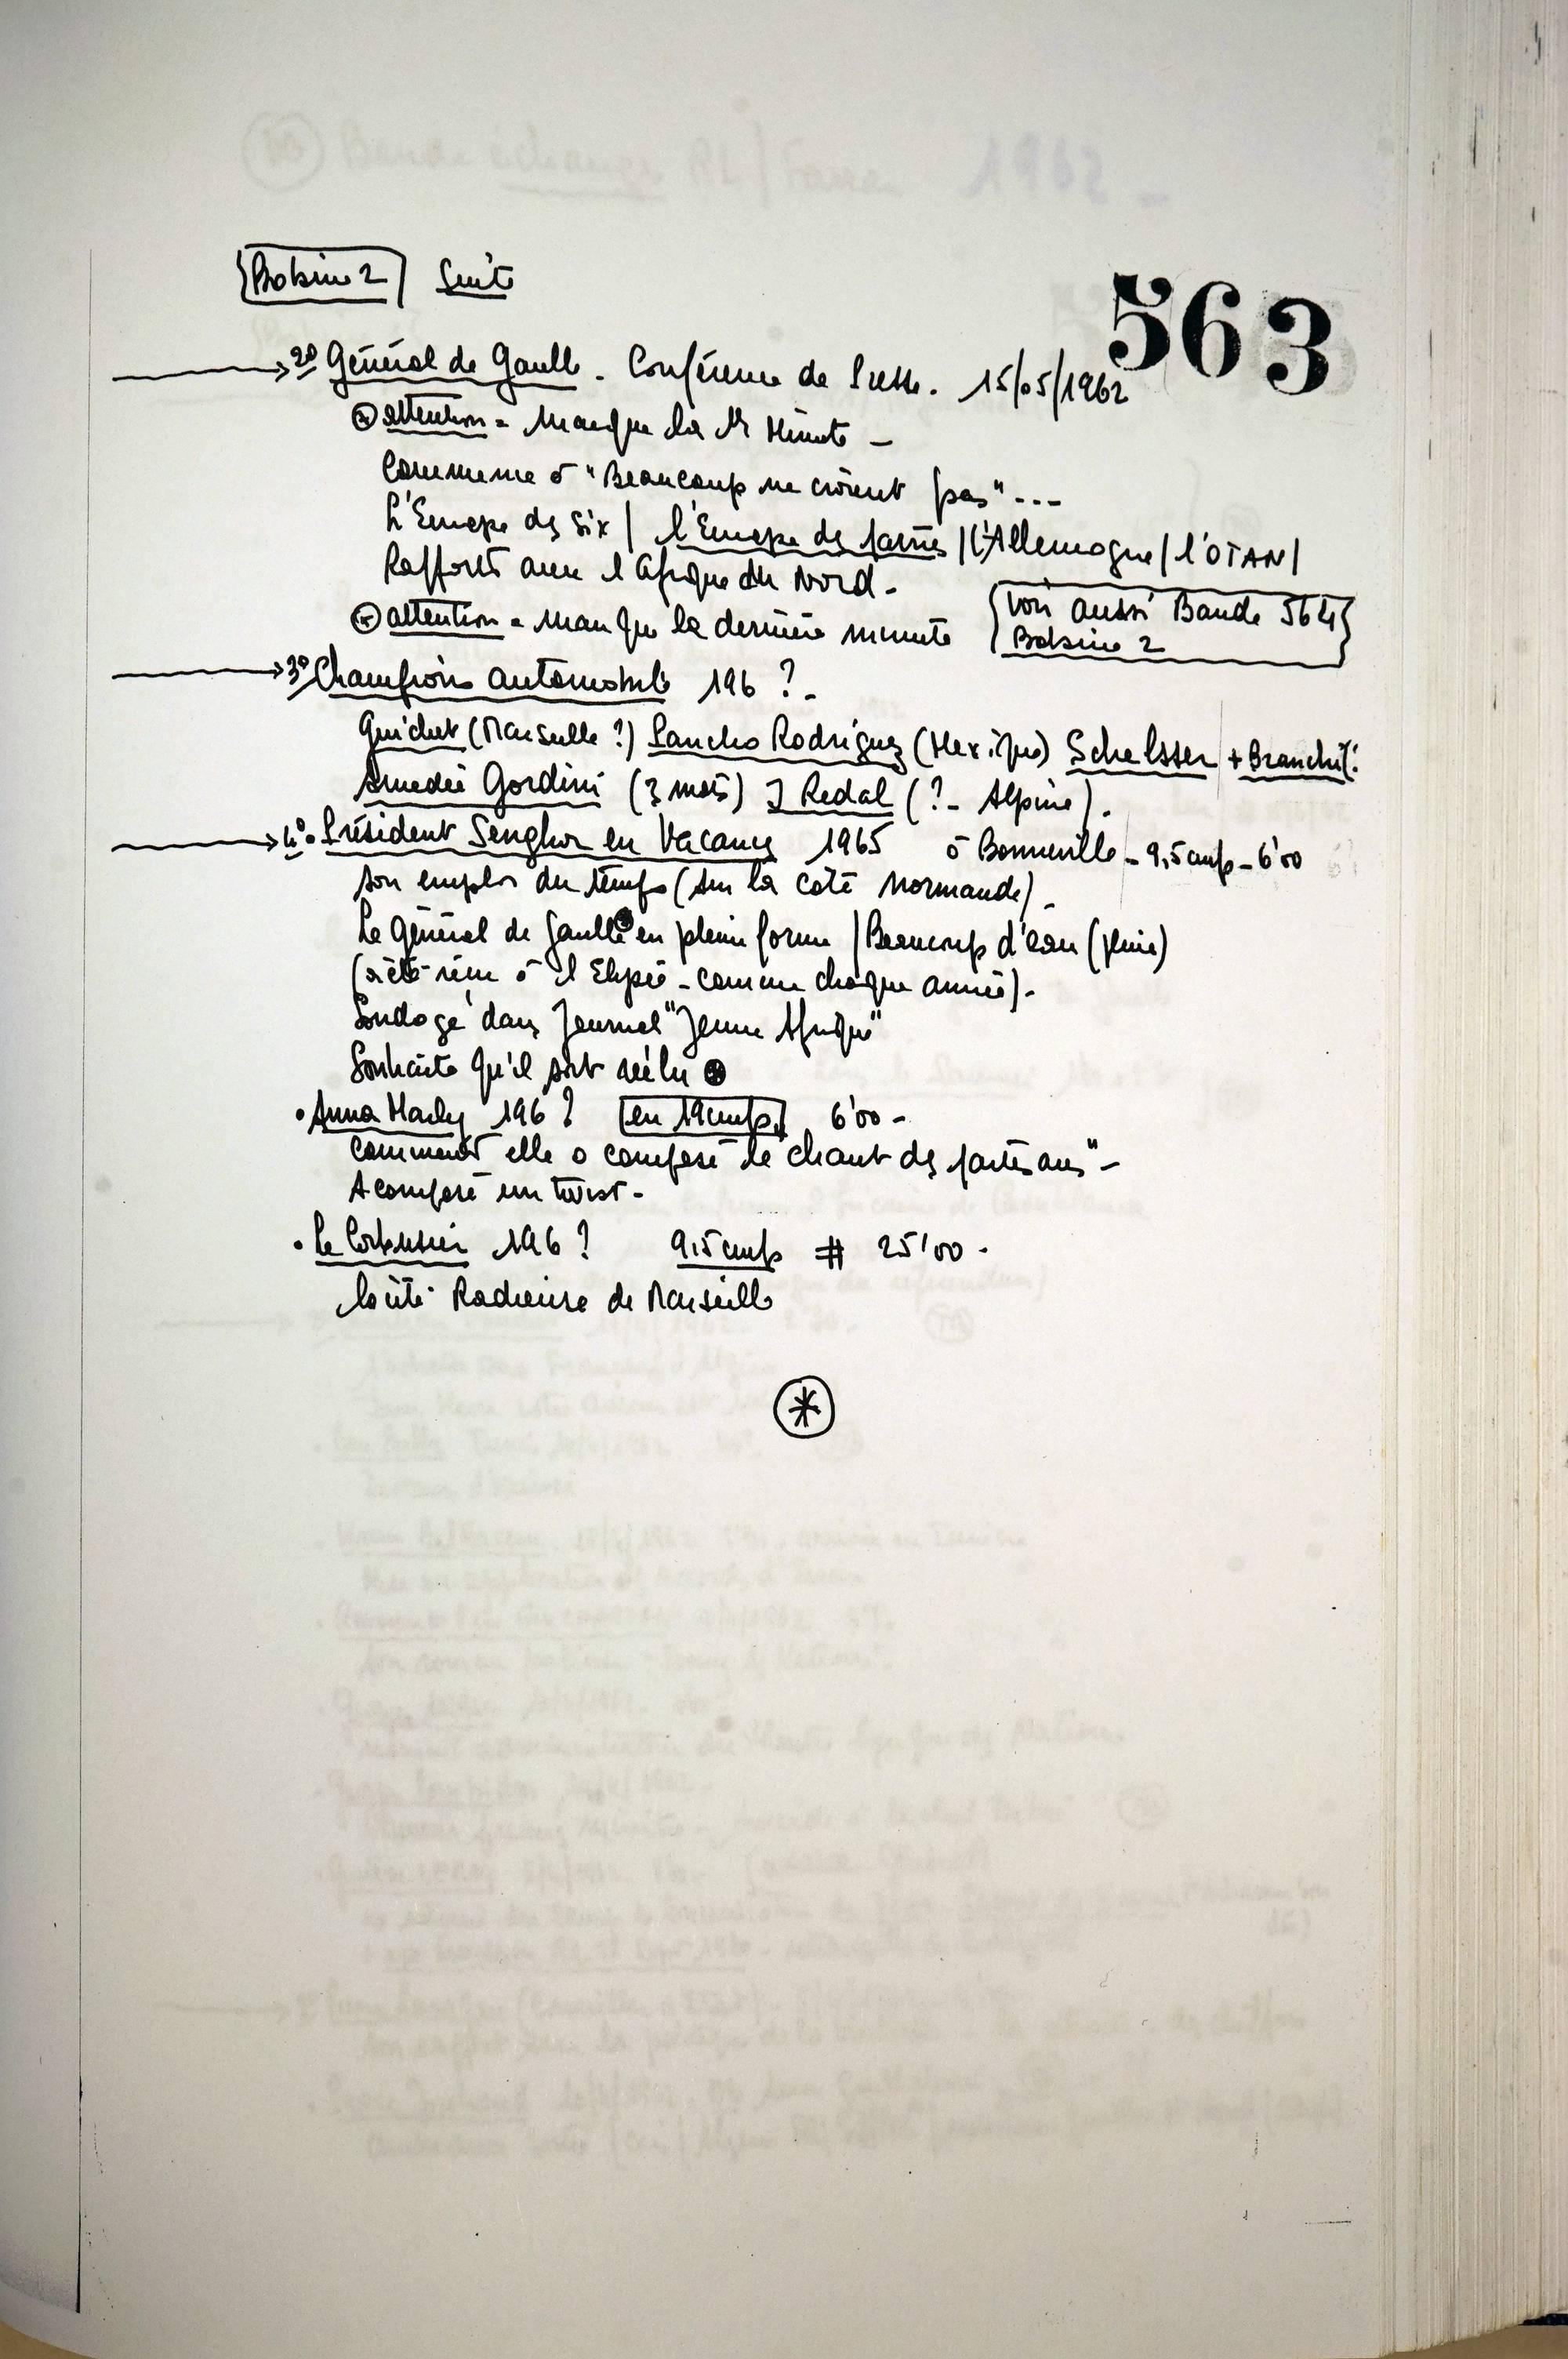 Bobine 2 Suite
563
2° Général de Gaulle. Conférence de Presse. 15/05/1962
attention = Manque la 1re Minute -
Commence à "Beaucoup ne croient pas"...
L'Europe des Six / l'Europe des patries / l'Allemagne / l'OTAN /
Rapports avec l'Afrique du Nord.
attention = Manque la dernière minute
Voir aussi Bande 564
Bobine 2
3° Champions automobile 196 ?.
Guichet (Marseille ?) Sancho Rodriguez (Mexique) Schelsser + Branchi(?
Amedée Gordini (3 mots) J Redal (?- Alpine).
4°. Président Senghor en Vacances 1965 à Bonneville - 9,5 cm/s - 6'00
Son emploi du temps (sur la côte normande).
Le Général de Gaulle en pleine forme / Beaucoup d'eau (pluie)
(a été reçu à l'Elysée - comme chaque année).
Sondage dans Journal "Jeune Afrique"
Souhaite qu'il soit réélu
. Anna Marly 196 ? en 19 cm/s. 6'00 -
comment elle a composé le chant des partisans" -
A composé un twist -
. Le Corbusier 196 ? 9,5 cm/s # 25'00 -
la cité Radieuse de Marseille